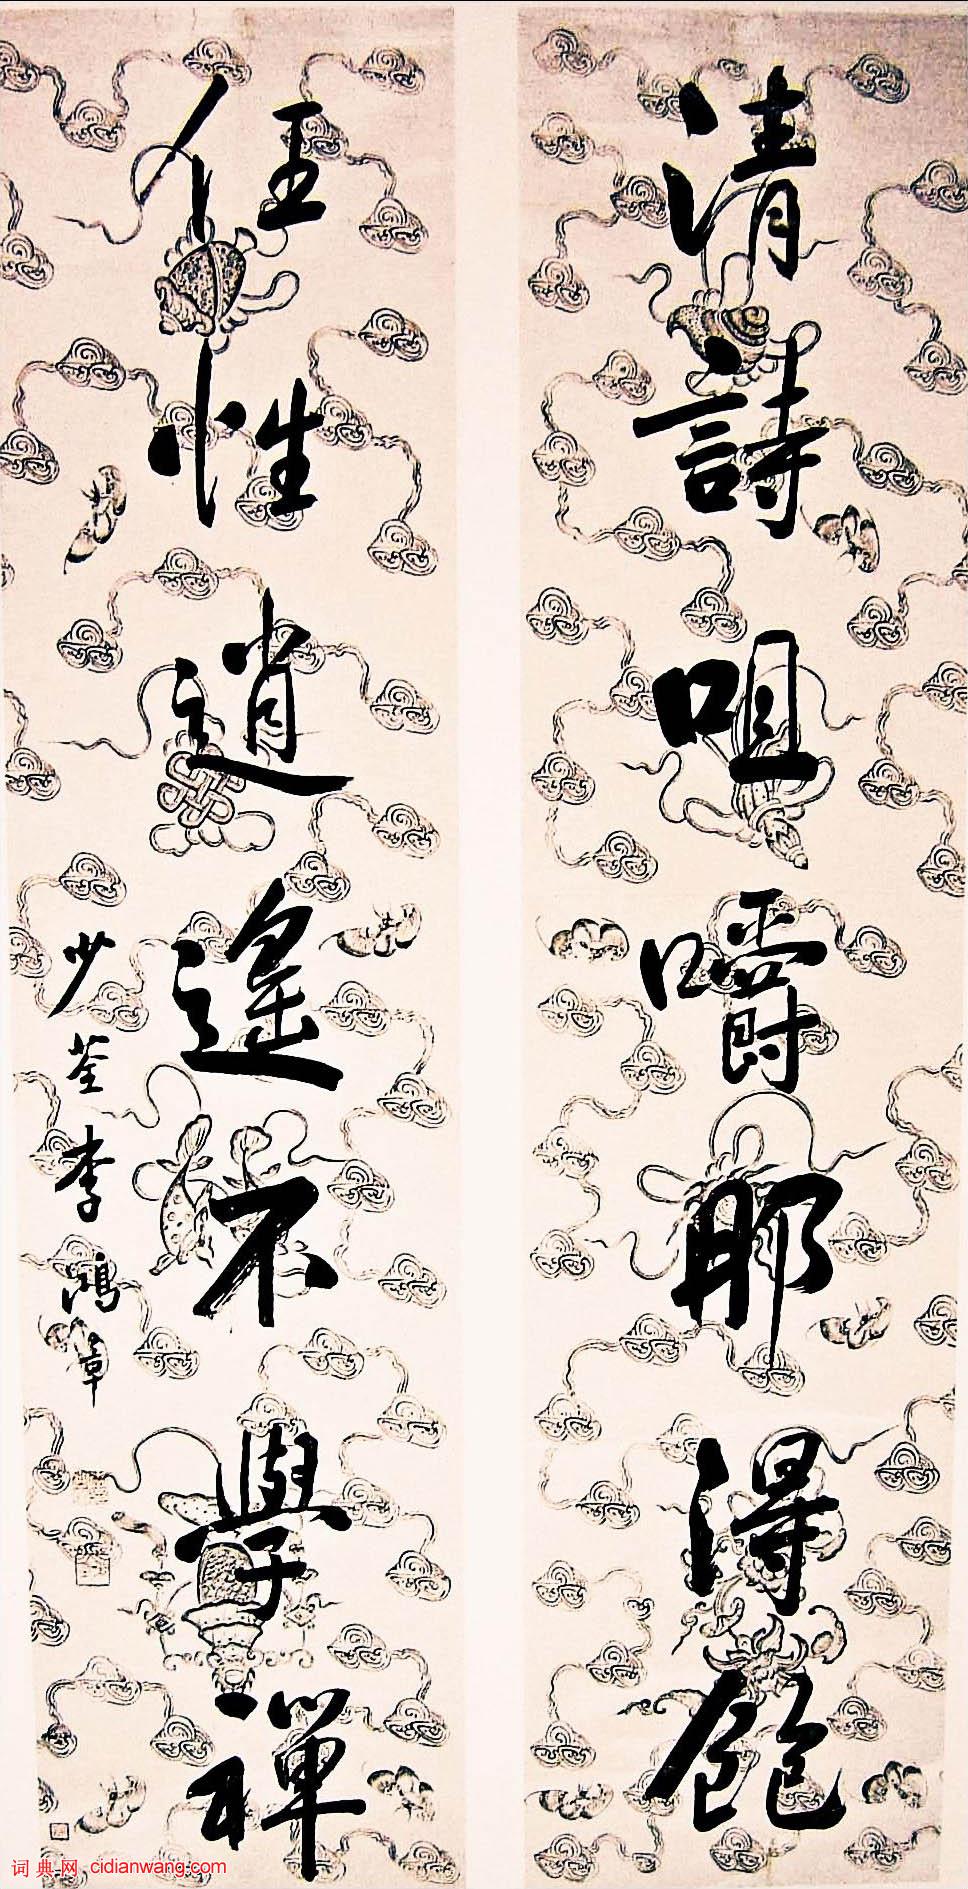 清詩咀嚼那得飽
任性逍遙不學禪
少荃李鴻章
词典网 cidianwang.com